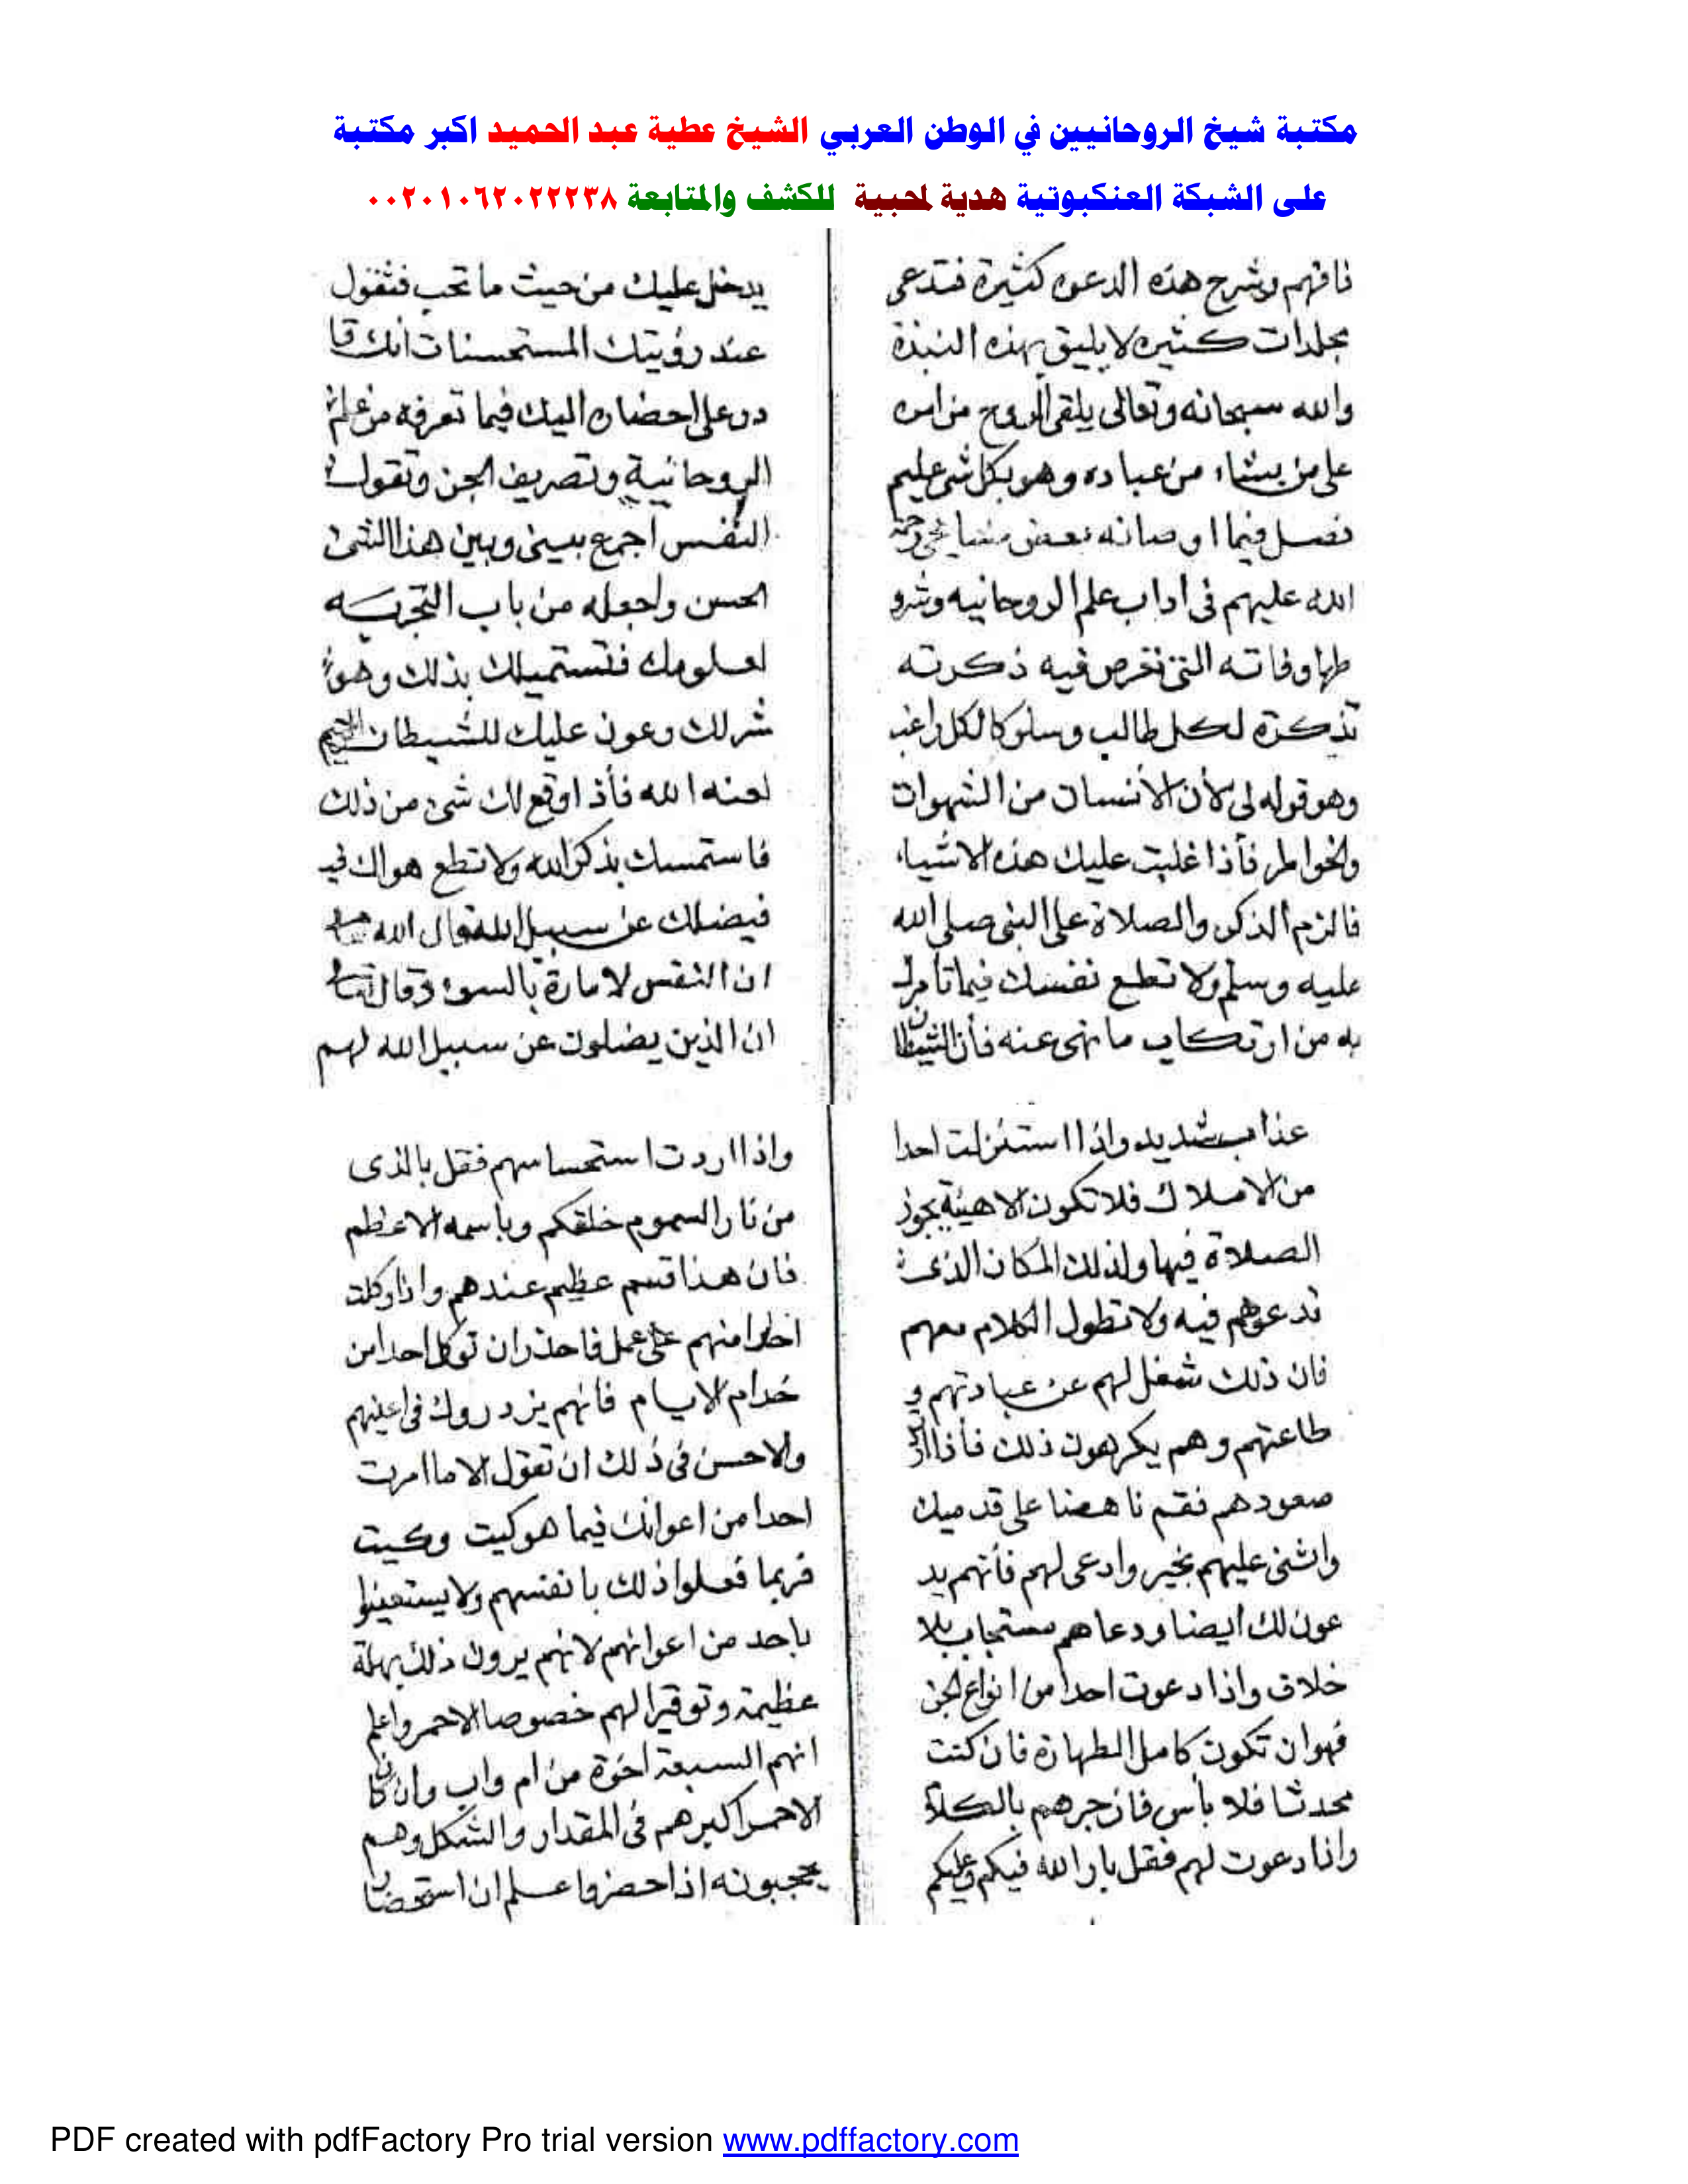 مكتبة شيخ الروحانيين في الوطن العربي الشيخ عطية عبد الحميد اكبر مكتبة
على الشبكة العنكبوتية هدية لمحبية للكشف والمتابعة ٠٠٢٠١٠٦٢٠٢٢٢٣٨
فافهم وشرح هذه الدعوه كثيرة فتدعى
مجلدات كثيره لا يليق بهذه النبذة
والله سبحانه وتعالى يلقى الروح من امره
على من يشاء من عباده وهو بكل شئ عليم
فصل فيما اوصانه بعض مشايخى رحمة
الله عليهم فى اداب علم الروحانيه وشرو
طها وفاته التى نخرص فيه ذكرته
تذكرة لكل طالب وسلوكا لكل راغب
وهو قوله لى لأن الأنسان من الشهوات
والخواطر فأذا غلبت عليك هذه الاشياء
فالزم الذكر والصلاة على النبى صلى الله
عليه وسلم ولا تطع نفسك فيما تأمرك
به من ارتكاب ما نهى عنه فأن الشيطان
يدخل عليك من حيث ما تحب فتقول
عند رؤيتك المستحسنات انك قا
در على احضاره اليك فيما تعرفه من علم
الروحانية وتصريف الجن وتقول
النفس اجمع بينى وبين هذا الشئ
الحسن واجعله من باب التجربه
لعلومك فتستميلك بذلك وهو
شر لك وعون عليك للشيطان الرجيم
لعنه الله فأذا وقع لك شئ من ذلك
فاستمسك بذكر الله ولا تطع هواك فيه
فيضلك عن سبيل الله قال الله تعالى
ان النفس لامارة بالسوء وقال تعالى
ان الذين يضلون عن سبيل الله لهم
عذاب شديد واذا استنزلت احدا
من الاملاك فلا تكون الا هيئة يجوز
الصلاة فيها ولذلك المكان الذى
تدعوهم فيه ولا تطول الكلام معهم
فان ذلك شغل لهم عن عبادتهم و
طاعتهم وهم يكرهون ذلك فأذا اردت
صعودهم فقم ناهضا على قدميك
واثنى عليهم بخير وادعى لهم فأنهم يد
عون لك ايضا ودعاهم مستجاب بلا
خلاف واذا دعوت احدا من انواع الجن
فهو ان تكون كامل الطهارة فان كنت
محدثا فلا بأس فازجرهم بالكلام
واذا دعوت لهم فقل بار الله فيكم وعليكم
واذا اردت استحساسهم فقل بالذى
من نار السموم خلقكم وباسمه الاعظم
فان هذا قسم عظيم عندهم واذا وكلت
احدا منهم على عمل فاحذر ان توكل احدا من
خدام الايام فانهم يزدروك فى اعينهم
والاحسن فى ذلك ان تقول الا ما امرت
احدا من اعوانك فيما هو كيت وكيت
فربما فعلوا ذلك بانفسهم ولا يستعينوا
باحد من اعوانهم لانهم يرون ذلك بهلة
عظيمة وتوقيرا لهم خصوصا الاحمر واعلم
انهم السبعة اخوة من ام واب وان كان
الاحمر اكبرهم فى المقدار والشكل وهم
يحجبونه اذا حضروا علم ان
PDF created with pdfFactory Pro trial version www.pdffactory.com